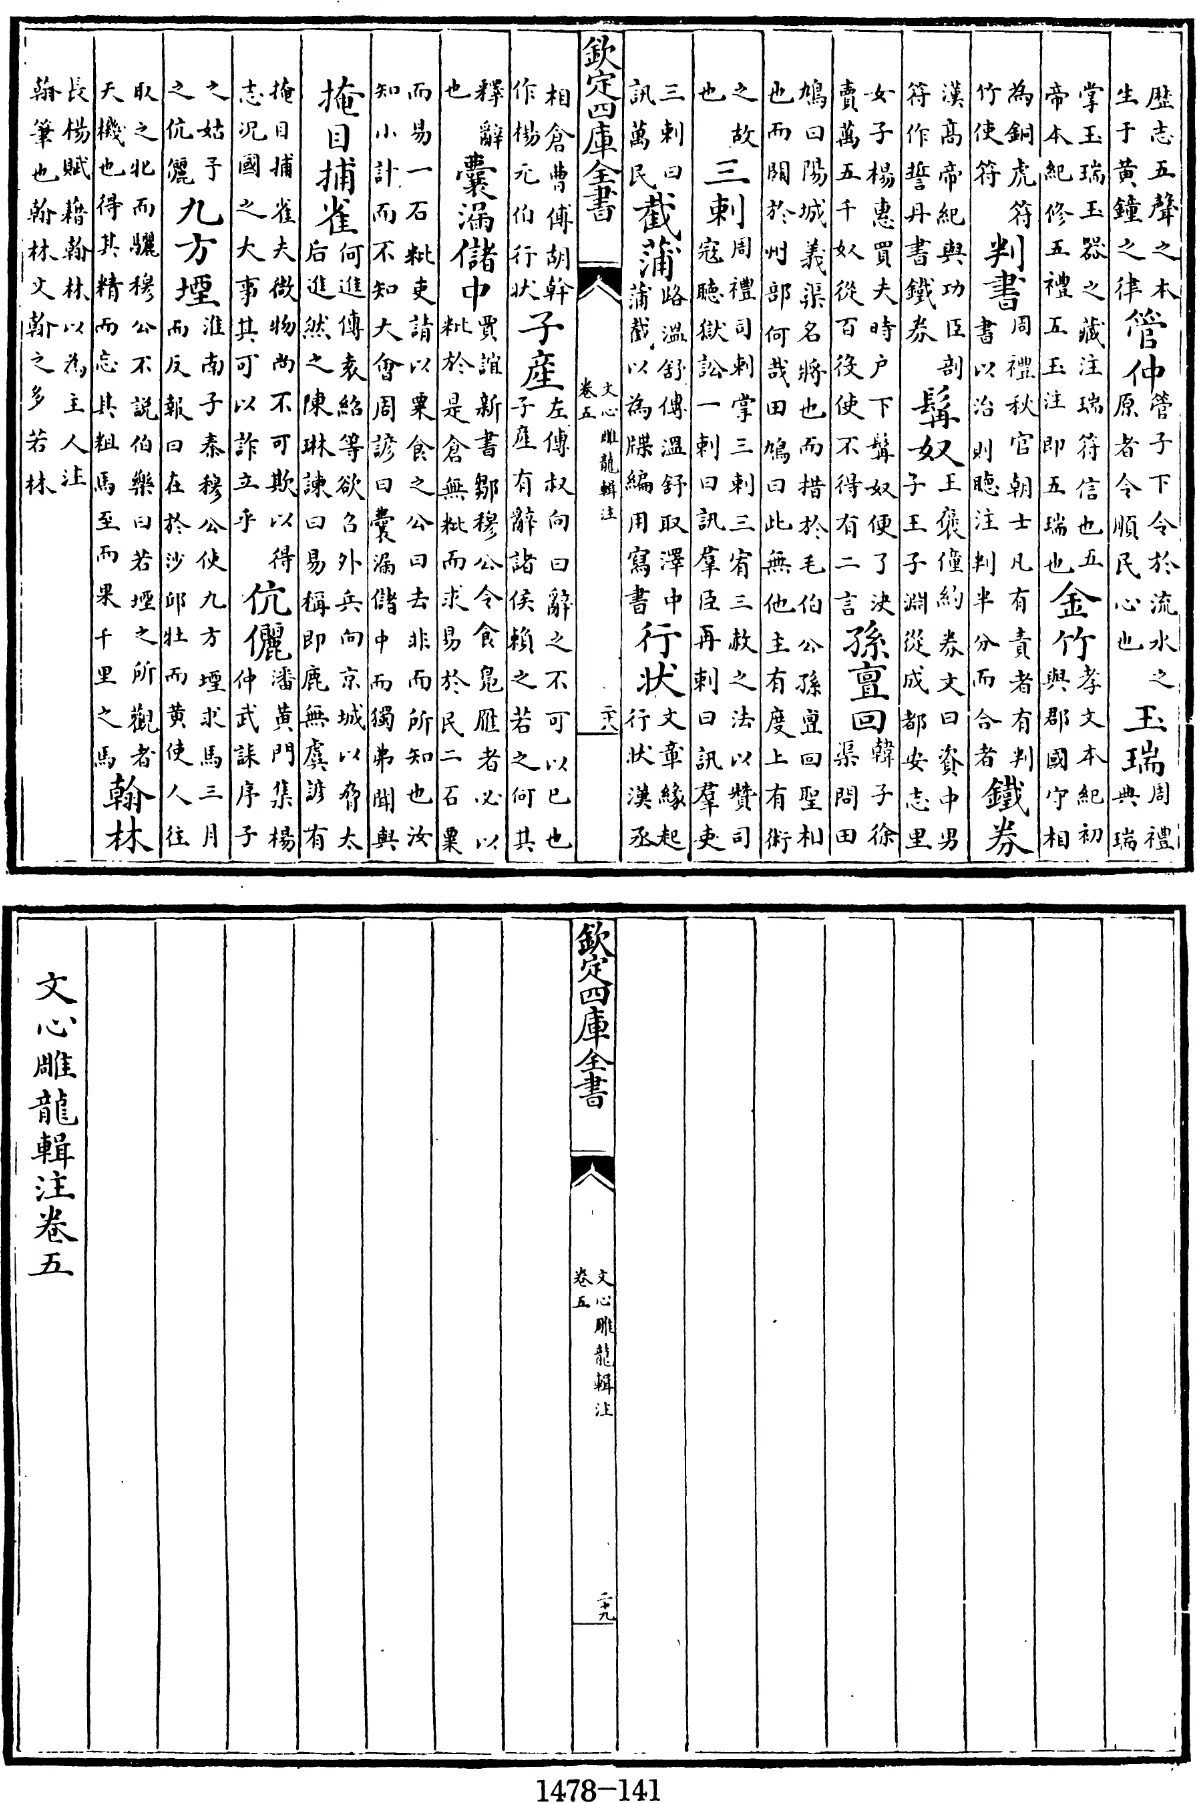 歴志五聲之本
生于黄鐘之律
管仲
管子下令於流水之
原者令順民心也
玉瑞
周禮
典瑞
掌玉瑞玉器之藏注瑞符信也五
帝本紀修五禮五玉注即五瑞也
金竹
孝文本紀初
與郡國守相
為銅虎符
竹使符
判書
周禮秋官朝士凡有責者有判
書以治則聽注判半分而合者
鐵券
漢髙帝紀與功臣剖
符作誓丹書鐵券
髯奴
王褒僮約券文曰資中男
子王子淵從成都安志里
女子楊惠買夫時户下髯奴便了决
賣萬五千奴從百役使不得有二言
孫亶回
韓子徐
渠問田
鳩曰陽城義渠名將也而措於毛伯公孫亶回聖相
也而關於州部何哉田鳩曰此無他主有度上有術
之故
也
三刺
周禮司刺掌三刺三宥三赦之法以贊司
寇聽獄訟一刺曰訊羣臣再刺曰訊羣吏
三刺曰
訊萬民
截蒲
路溫舒傳溫舒取澤中
蒲截以為牒編用寫書
行狀
文章緣起
行狀漢丞
欽定四庫全書
文心雕龍輯注
卷五
二十八
相倉曹傅胡幹
作楊元伯行狀
子産
左傳叔向曰辭之不可以已也
子産有辭諸侯賴之若之何其
釋辭
也
囊漏儲中
賈誼新書鄒穆公令食鳬雁者必以
粃於是倉無粃而求易於民二石粟
而易一石粃吏請以粟食之公曰去非而所知也汝
知小計而不知大會周諺曰囊漏儲中而獨弗聞與
掩目捕雀
何進傳袁紹等欲召外兵向京城以脅太
后進然之陳琳諫曰易稱即鹿無虞諺有
掩目捕雀夫微物尚不可欺以得
志况國之大事其可以詐立乎
伉儷
潘黄門集楊
仲武誄序子
之姑予
之伉儷
九方堙
淮南子秦穆公使九方堙求馬三月
而反報曰在於沙邱牡而黄使人往
取之牝而驪穆公不説伯樂曰若堙之所觀者
天機也得其精而忘其粗馬至而果千里之馬
翰林
長楊賦藉翰林以為主人注
翰筆也翰林文翰之多若林
欽定四庫全書
文心雕龍輯注
卷五
二十九
文心雕龍輯注卷五
1478-141